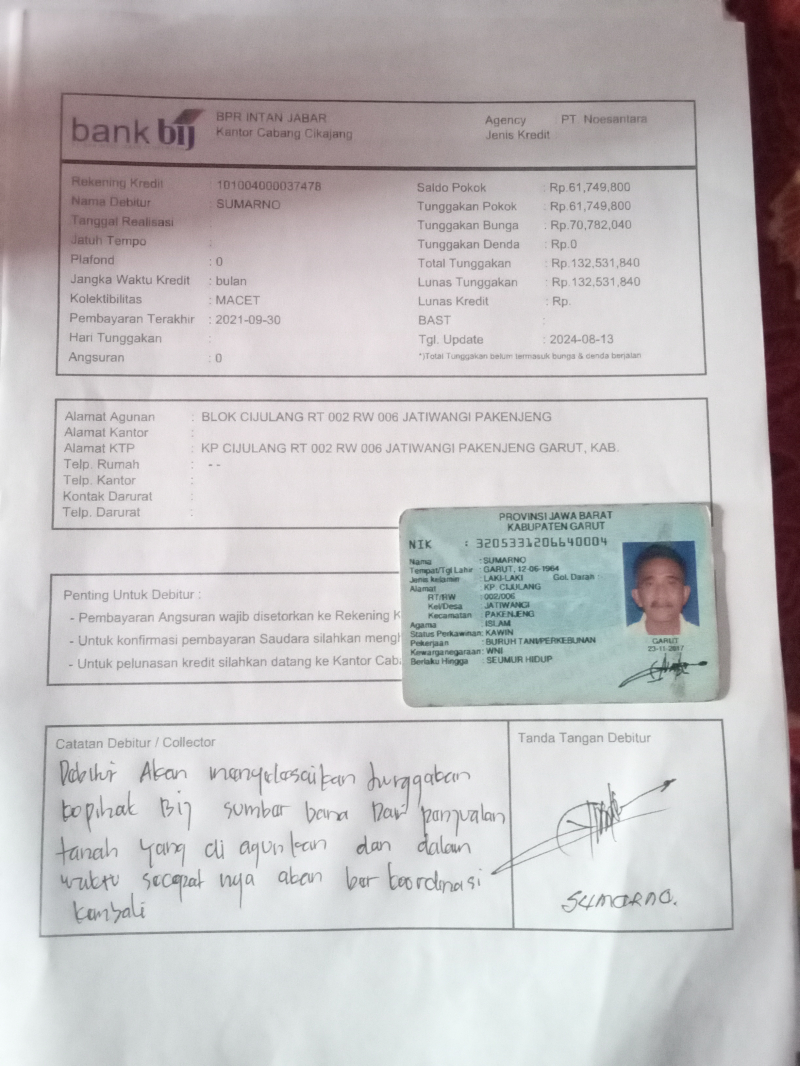 bank bij
BPR INTAN JABAR
Kantor Cabang Cikajang
Agency : PT Noesantara
Jenis Kredit
Rekening Kredit : 101004000037478
Nama Debitur : SUMARNO
Tanggal Realisasi
Jatuh Tempo :
Plafond : 0
Jangka Waktu Kredit : bulan
Kolektibilitas : MACET
Pembayaran Terakhir : 2021-09-30
Hari Tunggakan :
Angsuran : 0
Saldo Pokok : Rp.61,749,800
Tunggakan Pokok : Rp.61,749,800
Tunggakan Bunga : Rp.70,782,040
Tunggakan Denda : Rp.0
Total Tunggakan : Rp.132,531,840
Lunas Tunggakan : Rp.132,531,840
Lunas Kredit : Rp.
BAST :
Tgl. Update : 2024-08-13
*)Total Tunggakan belum termasuk bunga & denda berjalan
Alamat Agunan : BLOK CIJULANG RT 002 RW 006 JATIWANGI PAKENJENG
Alamat Kantor :
Alamat KTP : KP CIJULANG RT 002 RW 006 JATIWANGI PAKENJENG GARUT, KAB.
Telp. Rumah : --
Telp. Kantor :
Kontak Darurat :
Telp. Darurat :
PROVINSI JAWA BARAT
KABUPATEN GARUT
NIK : 3205331206640004
Nama : SUMARNO
Tempat/Tgl Lahir : GARUT, 12-06-1964
Jenis kelamin : LAKI-LAKI Gol. Darah :
Alamat : KP. CIJULANG
RT/RW : 002/006
Kel/Desa : JATIWANGI
Kecamatan : PAKENJENG
Agama : ISLAM
Status Perkawinan: KAWIN
Pekerjaan : BURUH TANI/PERKEBUNAN
Kewarganegaraan: WNI
Berlaku Hingga : SEUMUR HIDUP
GARUT
23-11-2017
Penting Untuk Debitur :
- Pembayaran Angsuran wajib disetorkan ke Rekening K
- Untuk konfirmasi pembayaran Saudara silahkan mengh
- Untuk pelunasan kredit silahkan datang ke Kantor Caba
Catatan Debitur / Collector
Debitur Akan menyelesaikan tunggakan
kepihak Bij sumber dana Dari penjualan
tanah yang di agunkan dan dalam
waktu secepat nya akan ber koordinasi
kembali
Tanda Tangan Debitur
SUMARNO.